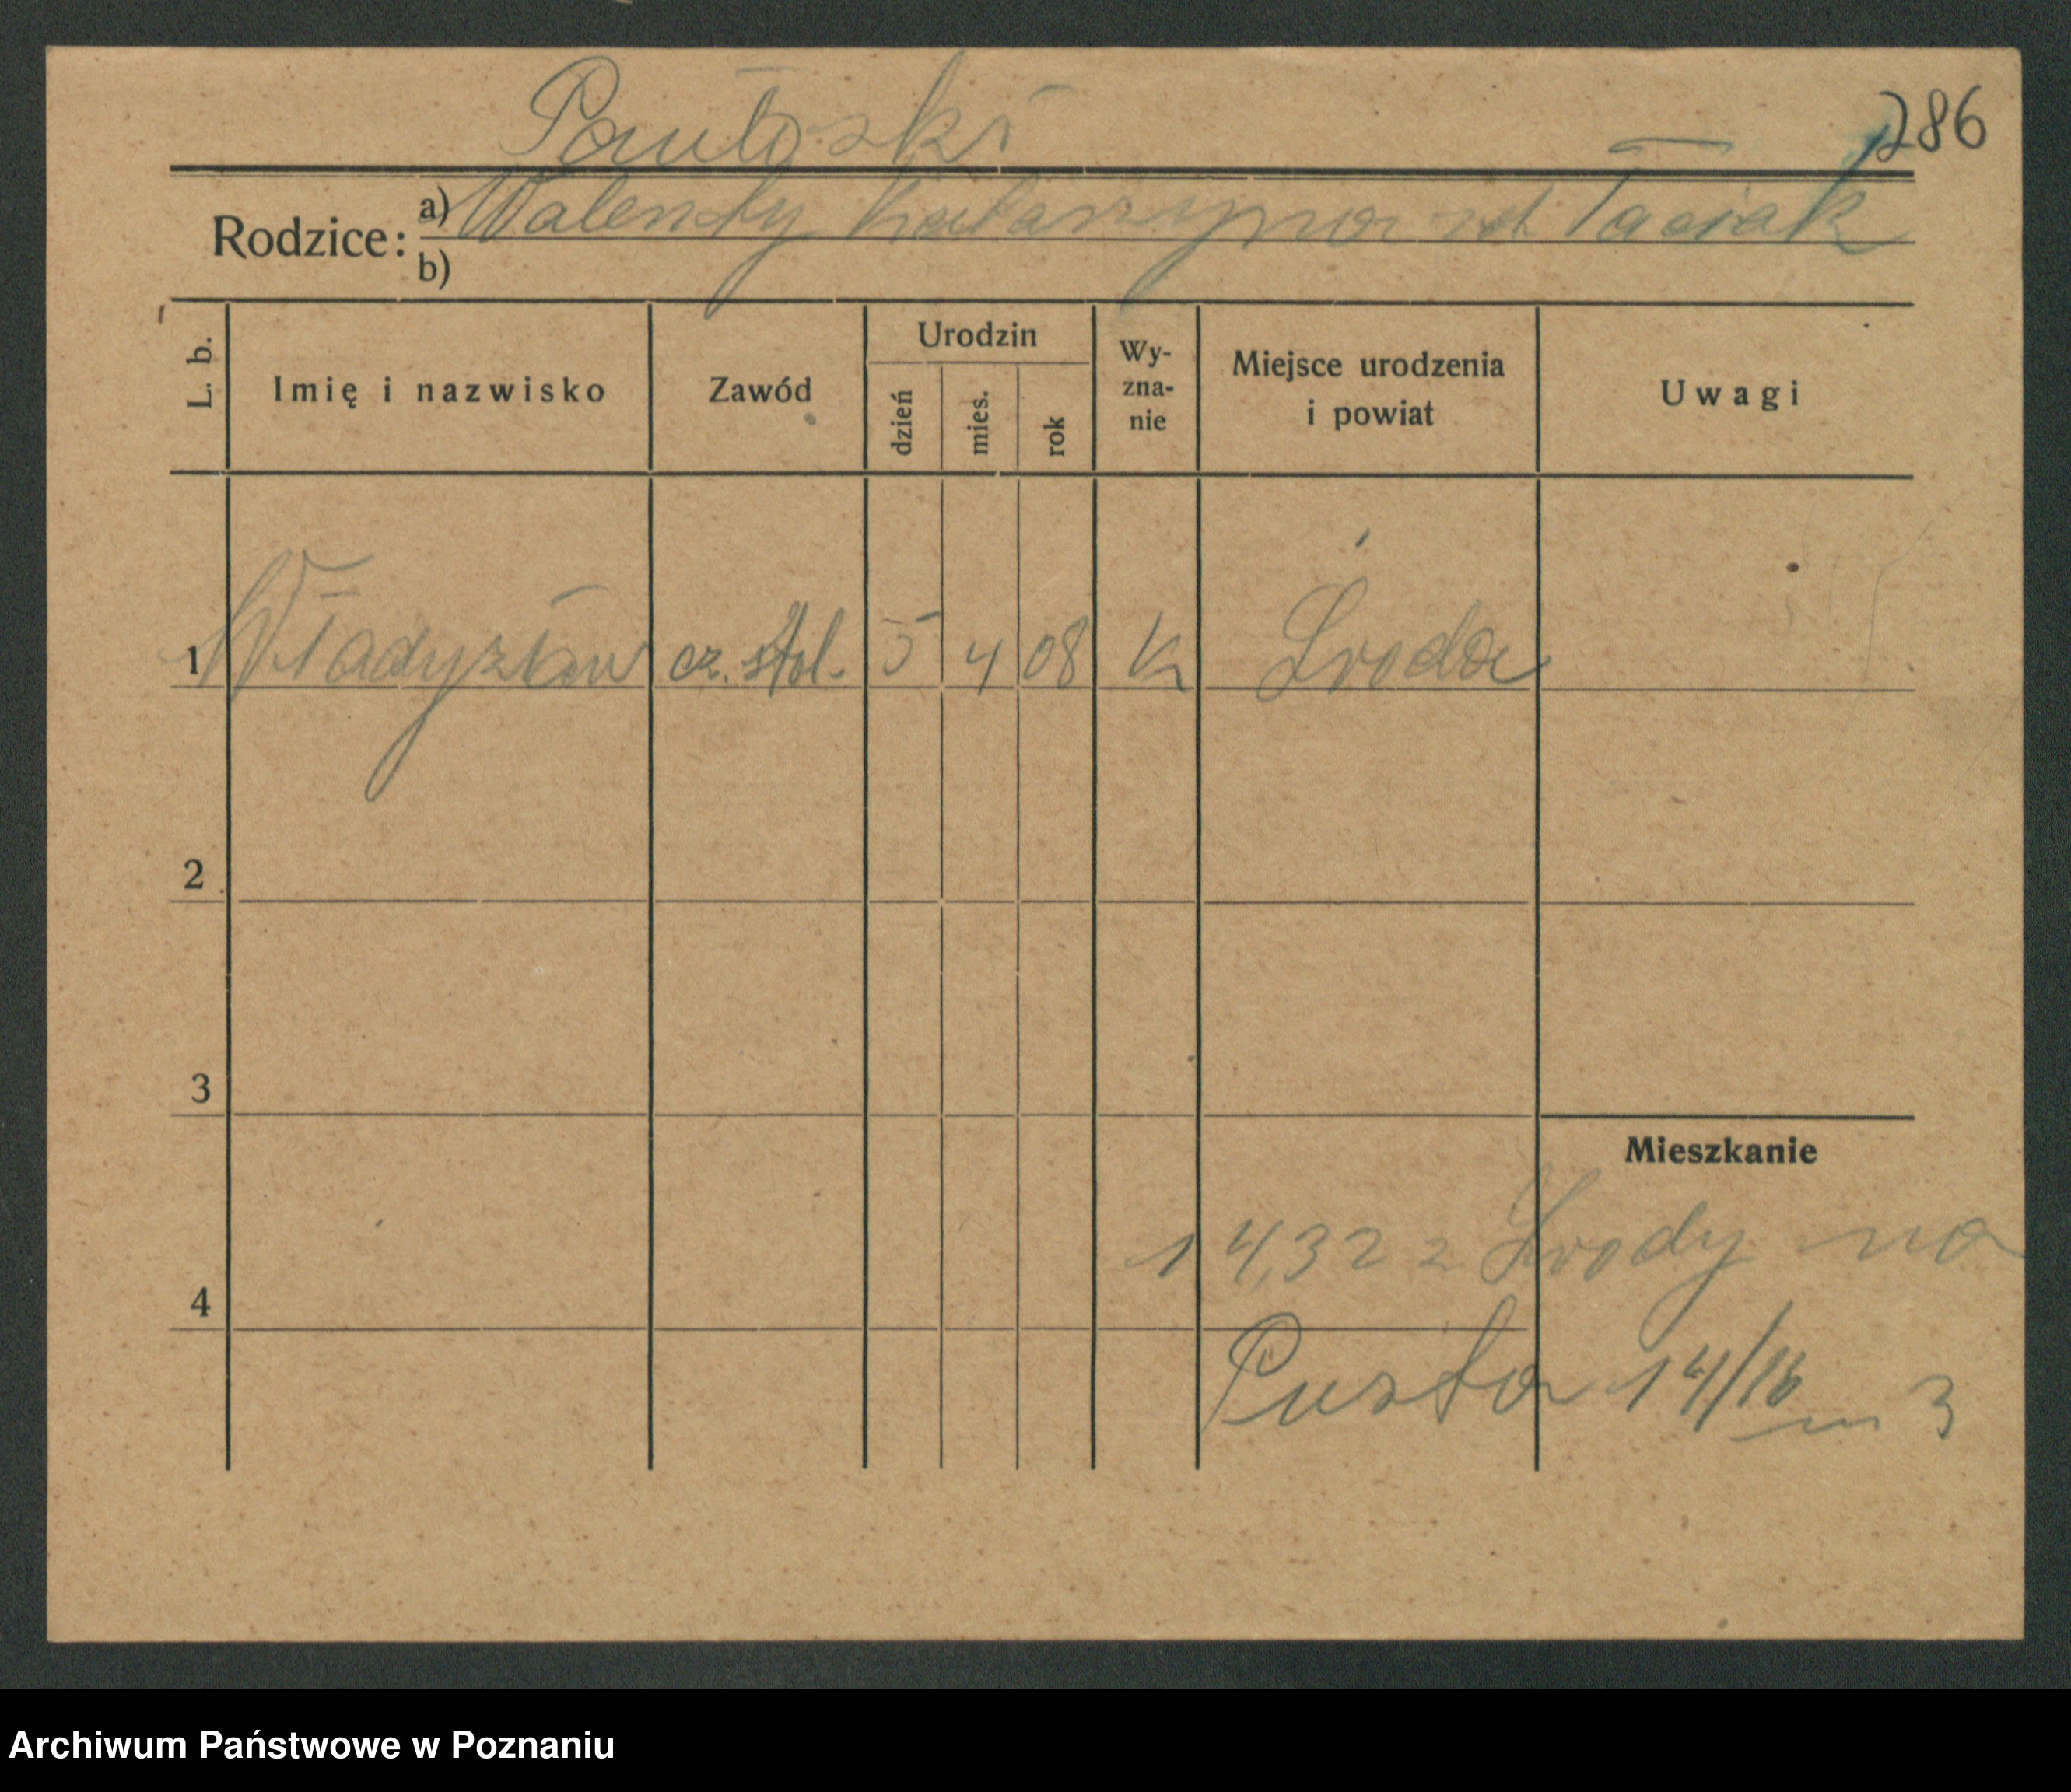 Pawłoski
286
Rodzice: a) Walenty Katarzyna zd. Taciak
b)
L. b. Imię i nazwisko Zawód Urodzin dzień mies. rok Wy-zna-nie Miejsce urodzenia i powiat Uwagi
1 Władysław cz. stol. 5 4 08 K Środa
2
3
Mieszkanie
1 4,32 z Środy na
4
Pusta 14/16 m 3
Archiwum Państwowe w Poznaniu